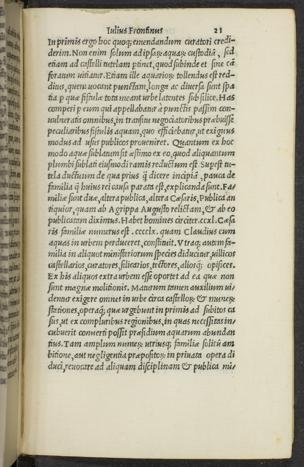 Iulius Frontinus 21
In primis ergo hoc quoq; emendandum curatori credi/
derim. Non enim solum ad ipsas aquas custodiã, sed
etiam ad castelli tutelam ptinet, quod subinde et sine cā
sa forarum uitiant. Etiam ille aquarijs tollendus est red
ditus, quem uocant punctum, longe ac diuersa sunt spa
tia p quæ fistulæ tota meant urbe latentes sub silice. Has
comperi p eum qui appellabatur à punctis passim con
uulneratis omnibus, in transitu negociatoribus præbuisse
peculiaribus fistulis aquam, quo efficiebatur, ut exiguus
modus ad usus publicos proueniret. Quantum ex hoc
modo aquæ sublatum sit æstimo ex eo, quod aliquantum
plumbi sublati eiusmodi ramis reductum est. Superest tu
tela ductuum de qua prius q̃ dicere incipiã, pauca de
familia q̃ huius rei causa parata est, explicanda sunt. Fa/
miliæ sunt duæ, altera publica, altera Cæsaris, Publica an
tiquior, quam ab Agrippa Augusto relictam, & ab eo
publicatam diximus. Habet homines circiter .ccxl. Cæsa
ris familiæ numerus est .cccclx. quam Claudius cum
aquas in urbem perduceret, constituit. Vtraq; autem fa/
milia in aliquot ministeriorum species diducitur, uillicos
castellarios, curatores, silicarios, tectores, aliosq; opifices.
Ex his aliquos extra urbem esse oportet ad ea quæ non
sunt magnæ molitionis. Maturum tamen auxilium ui/
dentur exigere omnes in urbe circa castellos & mune/
stationes, operaq; quæ urgebunt in primis ad subitos ca
sus, ut ex compluribus regionibus, in quas necessitas in/
cubuerit conuerti possit præsidium aquarum abundan
tius. Tam amplum numerus utriusq; familiæ solitum am
bitione, aut negligentia præpositos in priuata opera di
duci, reuocare ad aliquam disciplinam & publica mi/